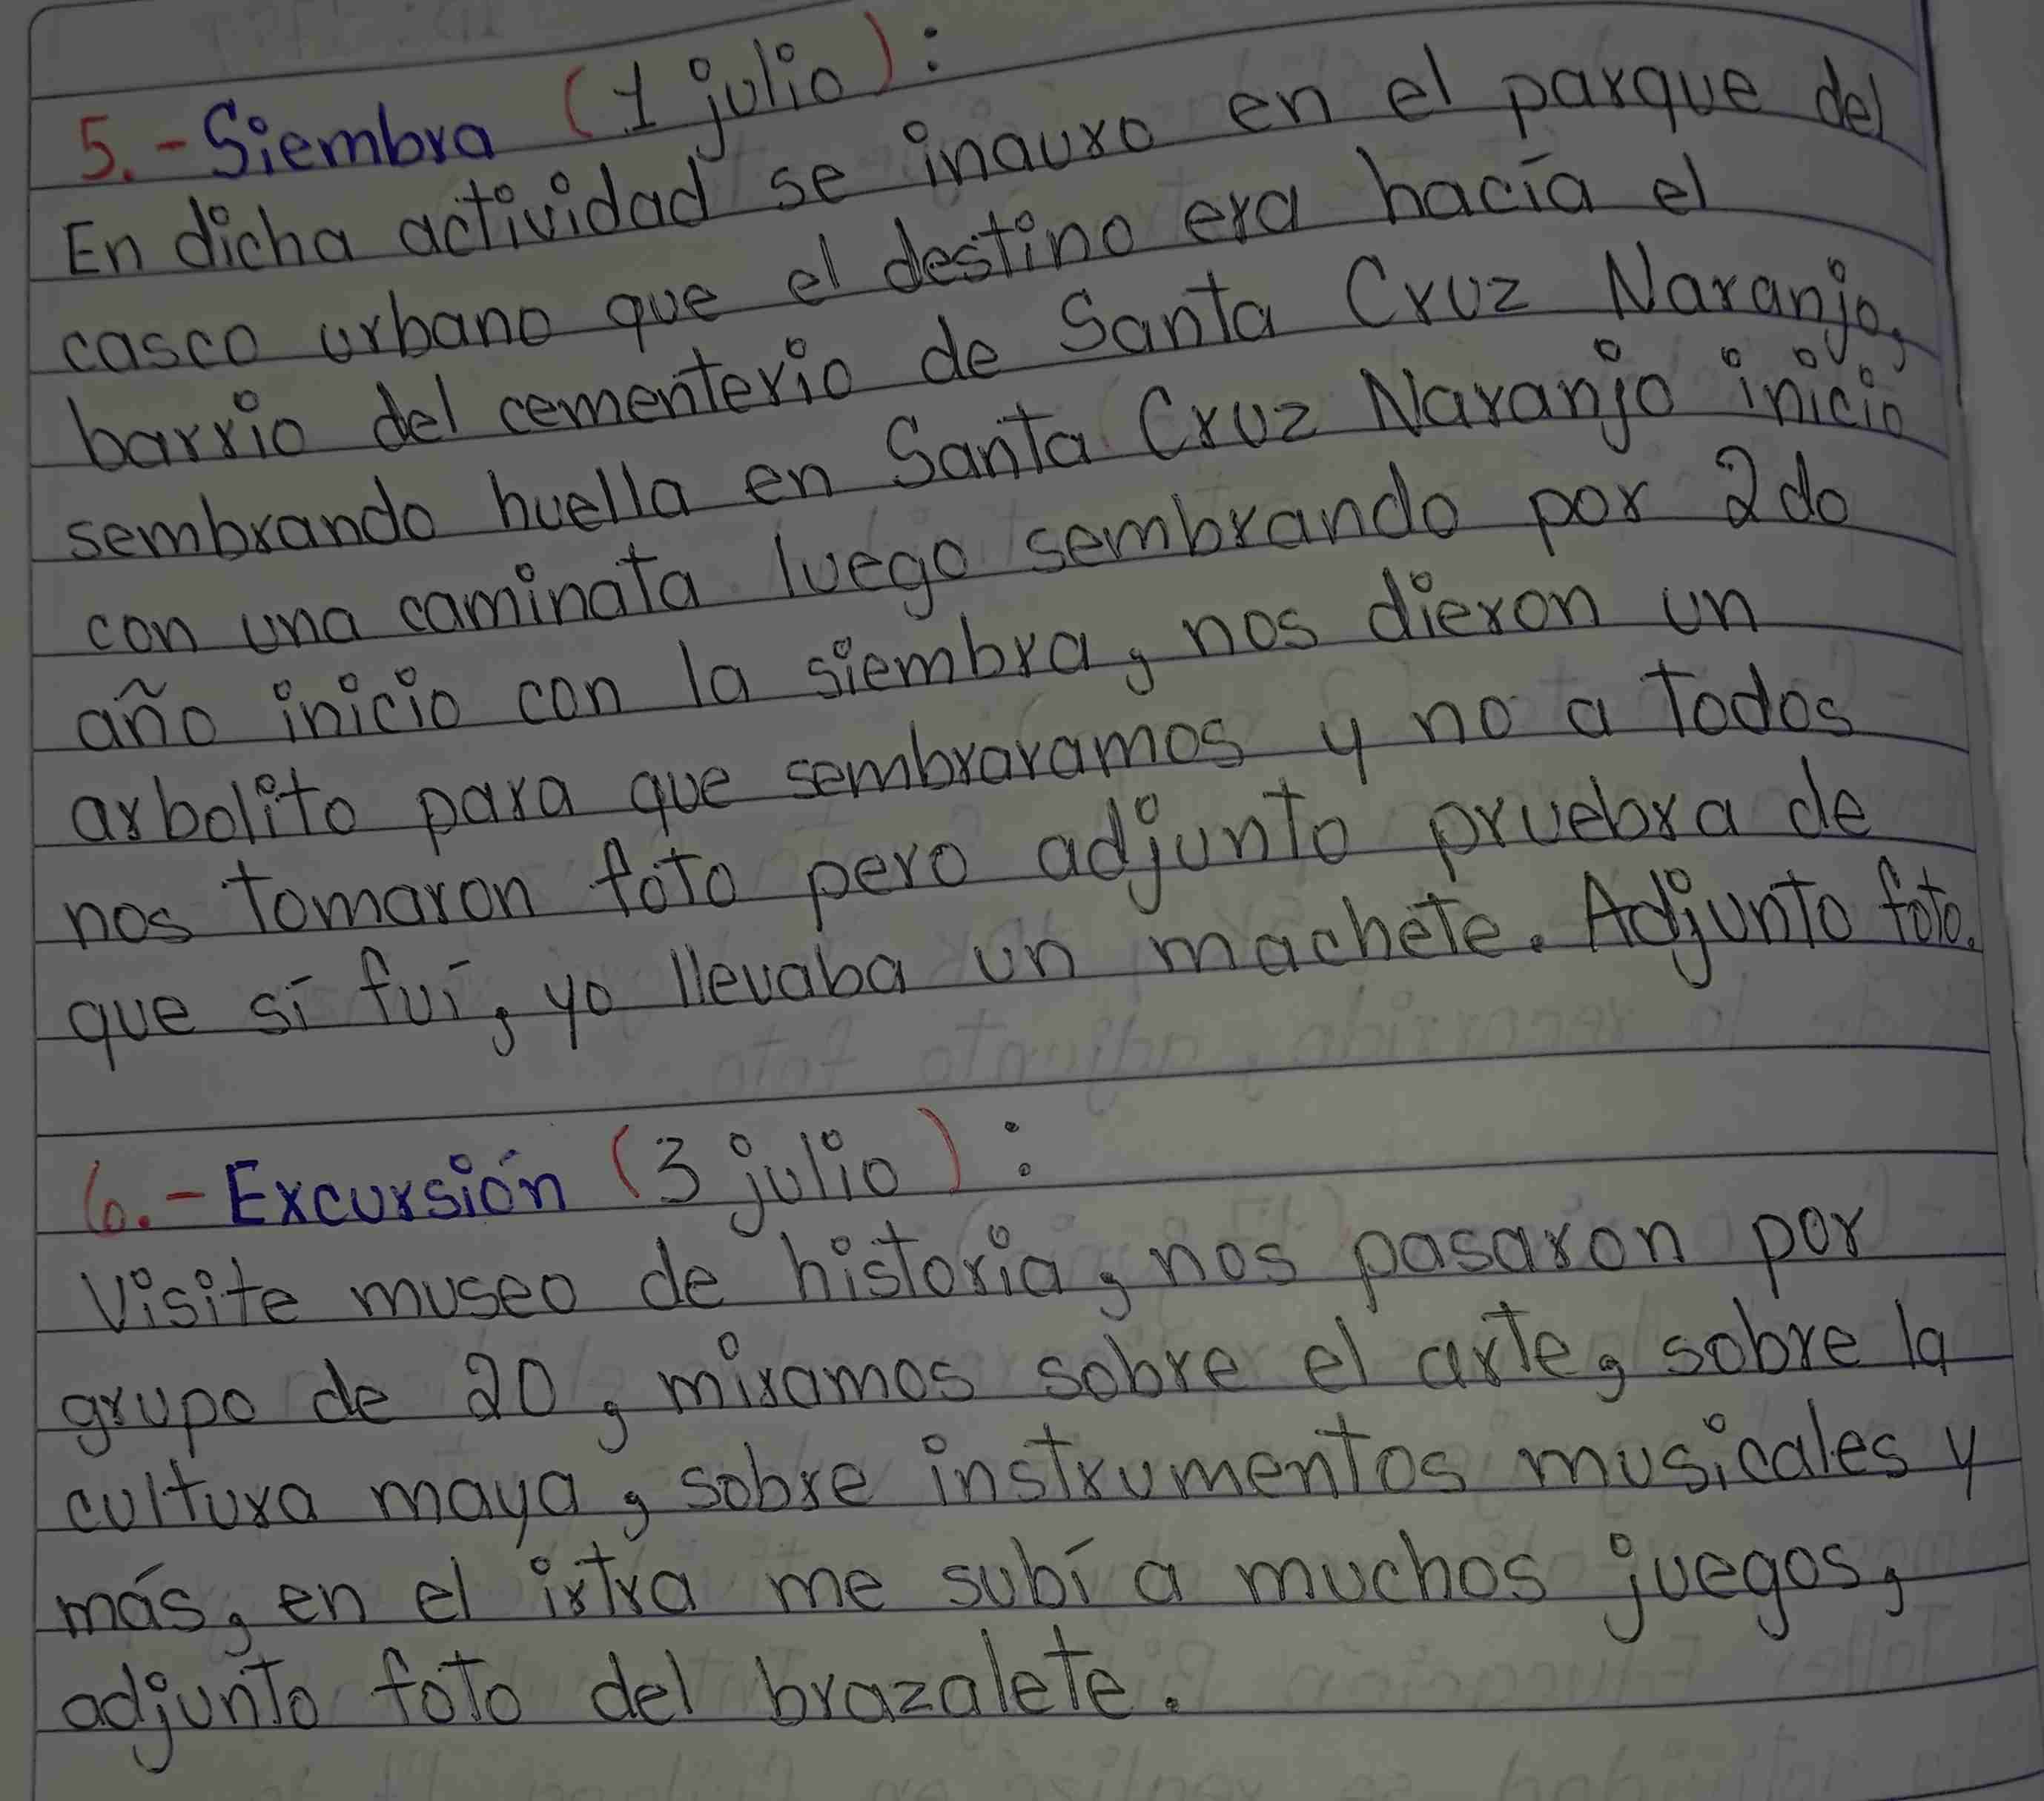 5.-Siembra (1 julio):
En dicha actividad se inauro en el parque del
casco urbano que el destino era hacía el
barrio del cementerio de Santa Cruz Naranjo,
sembrando huella en Santa Cruz Naranjo inicio
con una caminata luego sembrando por 2do
año inicio con la siembra, nos dieron un
arbolito para que sembraramos y no a Todos
nos Tomaron foto pero adjunto pruebra de
que sí fuí, yo llevaba un machete. Adjunto foto.
6.-Excursión (3 julio):
Visite museo de historia, nos pasaron por
grupo de 20, miramos sobre el arte, sobre la
cultura maya, sobre instrumentos musicales y
más, en el irtra me subí a muchos juegos,
adjunto foto del brazalete.